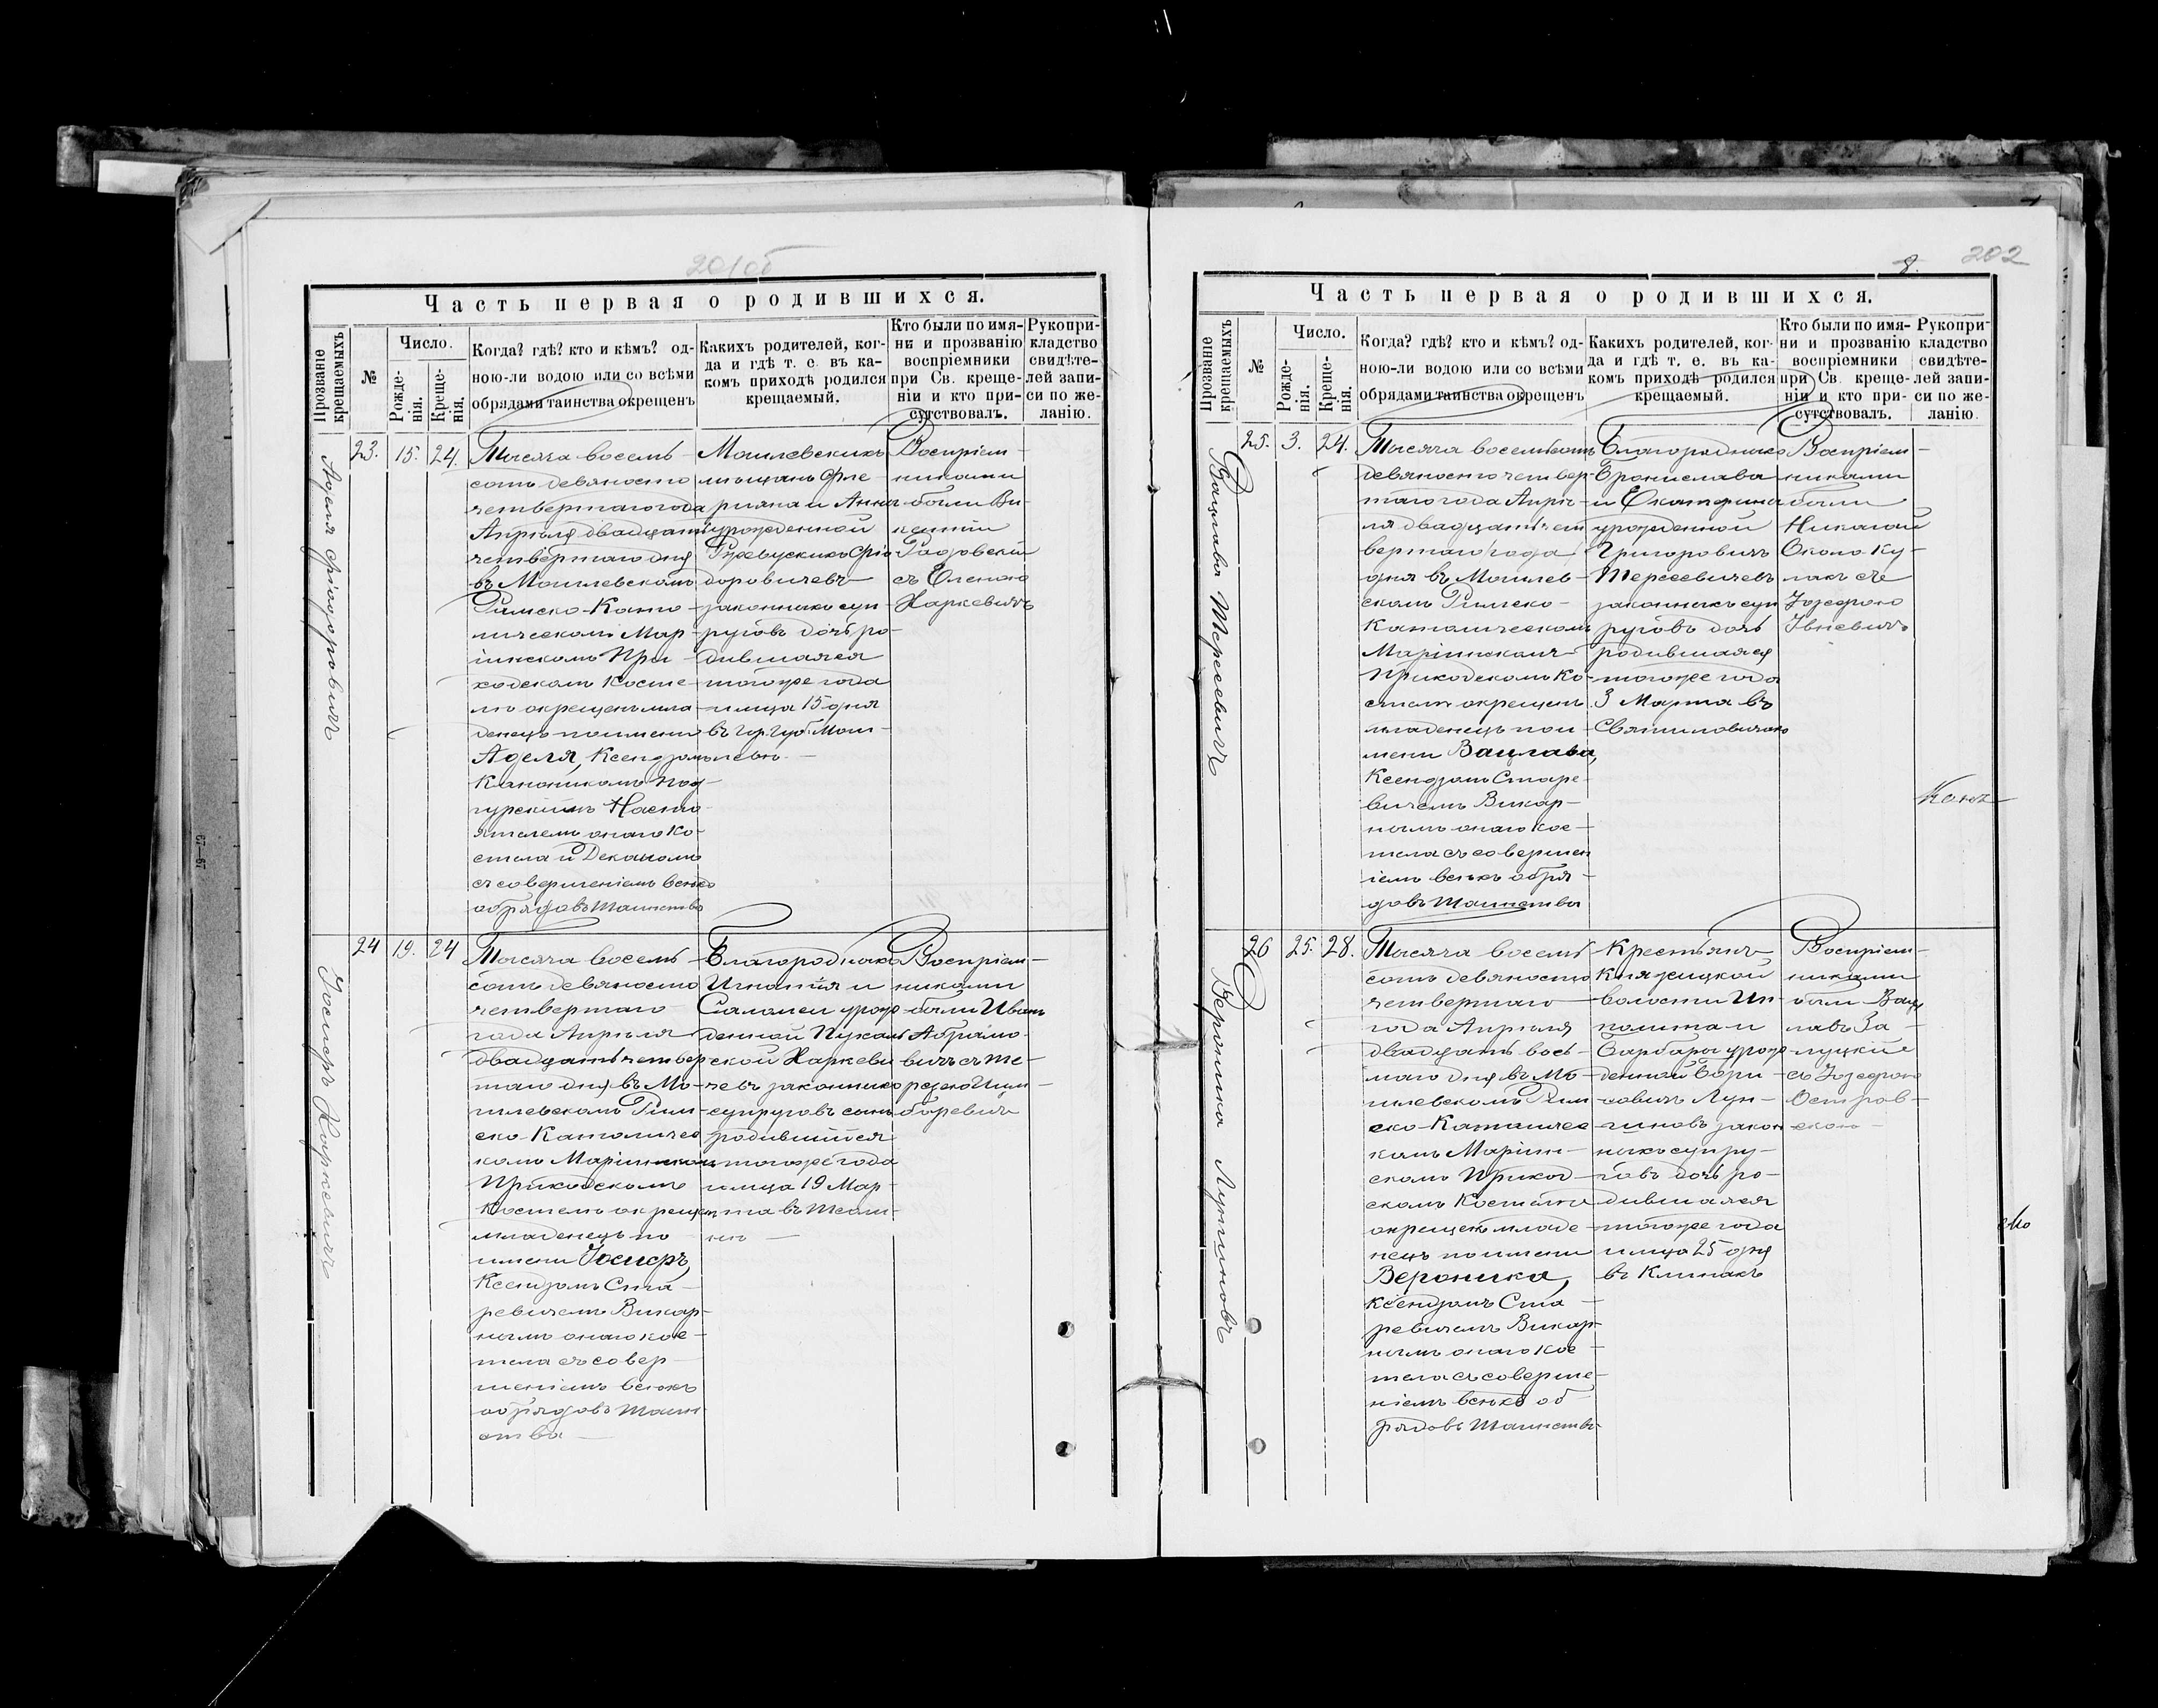 201об
Часть первая о родившихся.
Прозваніе крещаемыхъ
№
Число.
Рожде-
нія.
Креще-
нія.
Когда? гдѣ? кто и кѣмъ? од-
ною-ли водою или со всѣми
обрядами таинства окрещенъ
Какихъ родителей, ког-
да и гдѣ т. е. въ ка-
комъ приходѣ родился
крещаемый.
Кто были по имя-
ни и прозванію
воспріемники
при Св. креще-
ніи и кто при-
сутствовалъ.
Рукопри-
кладство
свидѣте-
лей запи-
си по же-
ланію.
Аделя Фіодоровичъ
23.
15.
24.
Тысяча восемь-
сотъ девяносто
четвертаго года
Апрѣля двадцать
четвертаго дня
въ Могилевскомъ
Римско-Като-
лическомъ Мар-
іинскомъ При-
ходскомъ Косте-
лѣ окрещенъ мла-
денецъ по имени
Аделя, Ксендзомъ
Каноникомъ Под-
гурскимъ Насто-
ятелемъ онаго Ко-
стела и Деканомъ
съ совершеніемъ всѣхъ
обрядовъ Таинства
Могилевскихъ
мѣщанъ Фло-
ріяна и Анны
урожденной
Фіо-
доровичевъ
законныхъ суп-
руговъ дочь ро-
дившаяся
тогоже года
и мца 15 дня
въ гор. губ. Моги-
левѣ.
Воспріем-
никами
были Ви-
кентій
съ Еленою
Харкевичъ
Іосифъ Харкевичъ
24
19.
24
Тысяча восемь-
сотъ девяносто
четвертаго
года Апрѣля
двадцать четвер-
таго дня въ Мо-
гилевскомъ Рим-
ско-Католичес
комъ Маріинскомъ
Приходскомъ
Костелѣ окрещенъ
младенецъ по
имени Іосифъ,
Ксендзомъ Ста-
ревичемъ Викар-
нымъ онаго Кос-
тела съ совер-
шеніемъ всѣхъ
обрядовъ Таин-
ства
Благородныхъ
Игнатія и
Саломеи урож-
денной
Харкеви-
чевъ законныхъ
супруговъ сынъ
родившійся
тогоже года
мца 19 Мар-
та въ
Воспріем-
никами
были Иванъ
Абрамо-
вичъ съ Те-
резою
Часть первая о родившихся.
8.
202
Прозваніе крещаемыхъ
№
Число.
Рожде-
нія.
Креще-
нія.
Когда? гдѣ? кто и кѣмъ? од-
ною-ли водою или со всѣми
обрядами таинства окрещенъ
Какихъ родителей, ког-
да и гдѣ т. е. въ ка-
комъ приходѣ родился
крещаемый.
Кто были по имя-
ни и прозванію
воспріемники
при Св. креще-
ніи и кто при-
сутствовалъ.
Рукопри-
кладство
свидѣте-
лей запи-
си по же-
ланію.
Вацлава Тересевичъ
25.
3.
24.
Тысяча восемьсотъ
девяносто четвер-
таго года Апрѣ-
ля двадцать чет-
вертаго года
дня въ Могилев-
скомъ Римско-
Католическомъ
Маріинскомъ
Приходскомъ Ко-
стелѣ окрещенъ
младенецъ по и-
мени Вацлава,
Ксендзомъ Старе-
вичемъ Викар-
нымъ онаго Кос-
тела съ совершен
іемъ всѣхъ обря-
довъ Таинства
Благородныхъ
Бронислава
и Екатерины
урожденной
Григоровичъ
Тересевичевъ
законныхъ суп
руговъ дочь
родившаяся
тогоже года
3 Марта въ
Воспріем-
никами
были
Николай
Около-Ку-
лакъ съ
Іозефою
Вероника Лупиновъ
26
25.
28.
Тысяча восемь-
сотъ девяносто
четвертаго
года Апрѣля
двадцать вось-
маго дня въ Мо-
гилевскомъ Рим
ско-Католичес
комъ Маріин-
скомъ Приход-
скомъ Костелѣ
окрещенъ младе-
нецъ по имени
Вероника,
Ксендзомъ Ста-
ревичемъ Викар-
нымъ онаго Кос-
тела съ соверше-
ніемъ всѣхъ об
рядовъ Таинства
Крестьянъ
Княжицкой
волости Ип-
полита и
Барбары урож-
денной Бори-
совичъ Лупи-
новъ закон
ныхъ супру-
говъ дочь ро-
дившаяся
тогоже года
и мца 25 дня
въ Климахъ
Воспріем-
никами
были Вац-
лавъ За-
луцкій
съ Іозефою
Остров-
скою